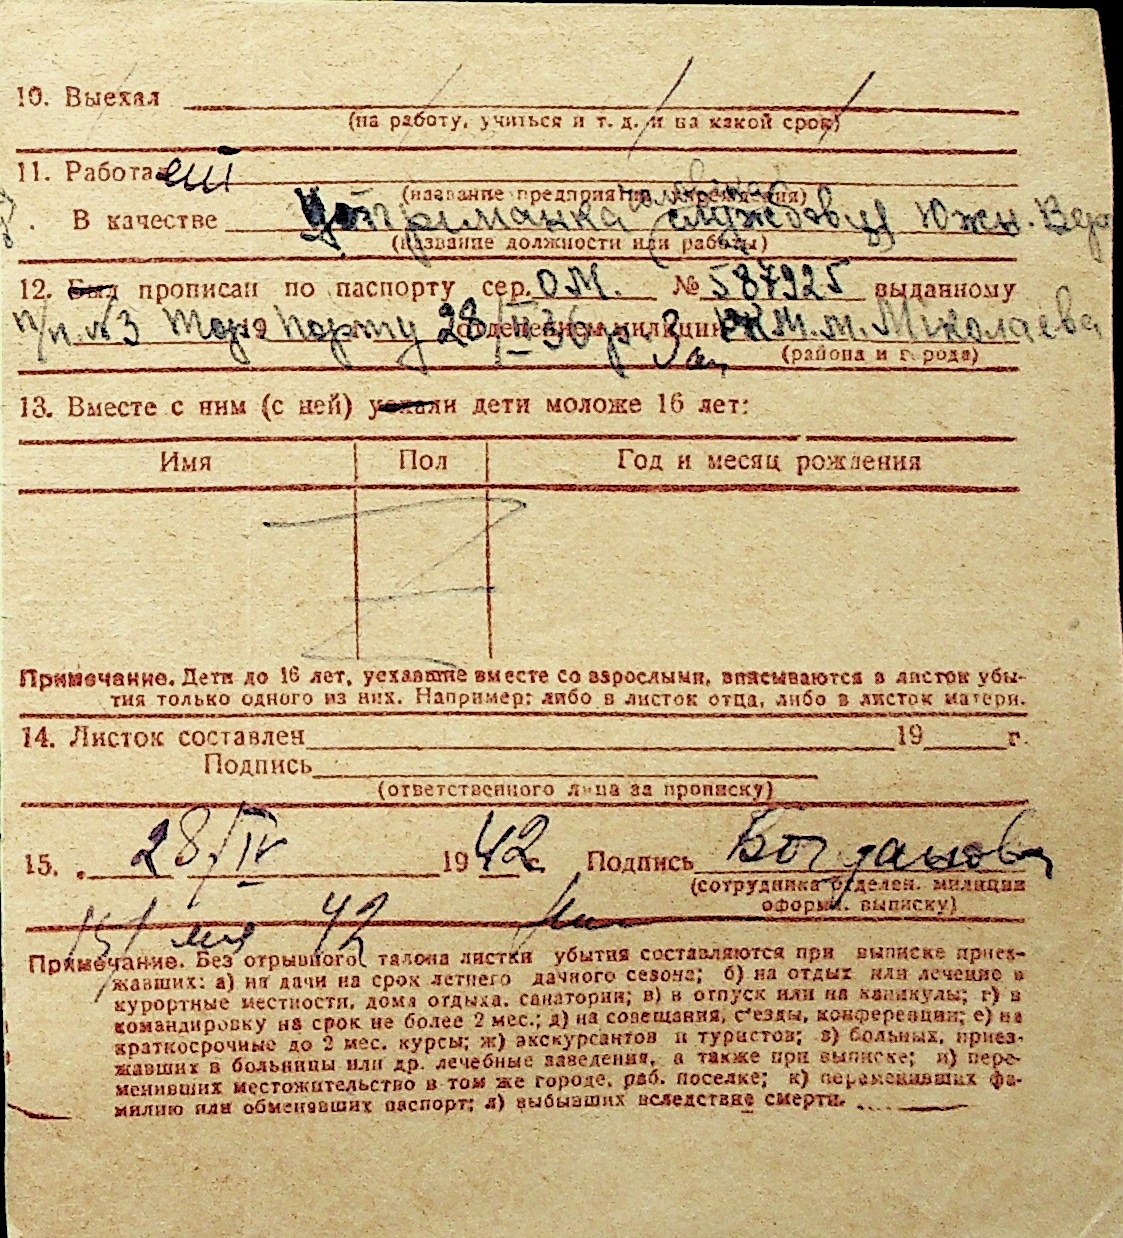 10. Выехал
(на работу, учиться и т. д. и на какой срок)
11. Работает
(название предприятия, учреждения)
В качестве Утриманка службовця Южн. Вер
(название должности или работы)
12. Был прописан по паспорту сер. ОМ. № 587925 выданному
п/п. №3 Порту 28/II 36 р. отделением милиции М. Миколаева
(района и города)
13. Вместе с ним (с ней) уехали дети моложе 16 лет:
Имя Пол Год и месяц рождения
Примечание. Дети до 16 лет, уехавшие вместе со взрослыми, вписываются в листок убы-
тия только одного из них. Например: либо в листок отца, либо в листок матери.
14. Листок составлен 19 г.
Подпись
(ответственного лица за прописку)
15. 28/IV 1942 г. Подпись Богданова
(сотрудника отделен. милиции
оформ. выписку)
15/ 42
Примечание. Без отрывного талона листки убытия составляются при выписке приез-
жавших: а) на дачи на срок летнего дачного сезона; б) на отдых или лечение в
курортные местности, дома отдыха, санатории; в) в отпуск или на каникулы; г) в
командировку на срок не более 2 мес.; д) на совещания, с'езды, конференции; е) на
краткосрочные до 2 мес. курсы; ж) экскурсантов и туристов; з) больных, приез-
жавших в больницы или др. лечебные заведения, а также при выписке; и) пере-
менивших местожительство в том же городе, раб. поселке; к) переменивших фа-
милию или обменявших паспорт; л) выбывших вследствие смерти.